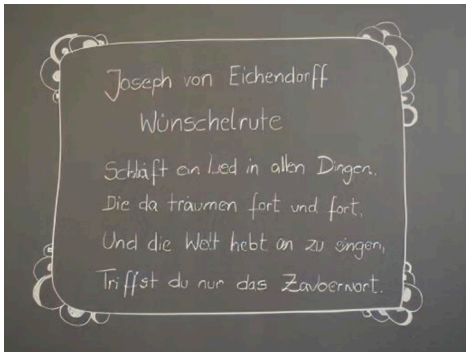 Joseph von Eichendorff
Wünschelrute
Schläft ein Lied in allen Dingen,
Die da träumen fort und fort,
Und die Welt hebt an zu singen,
Triffst du nur das Zauberwort.